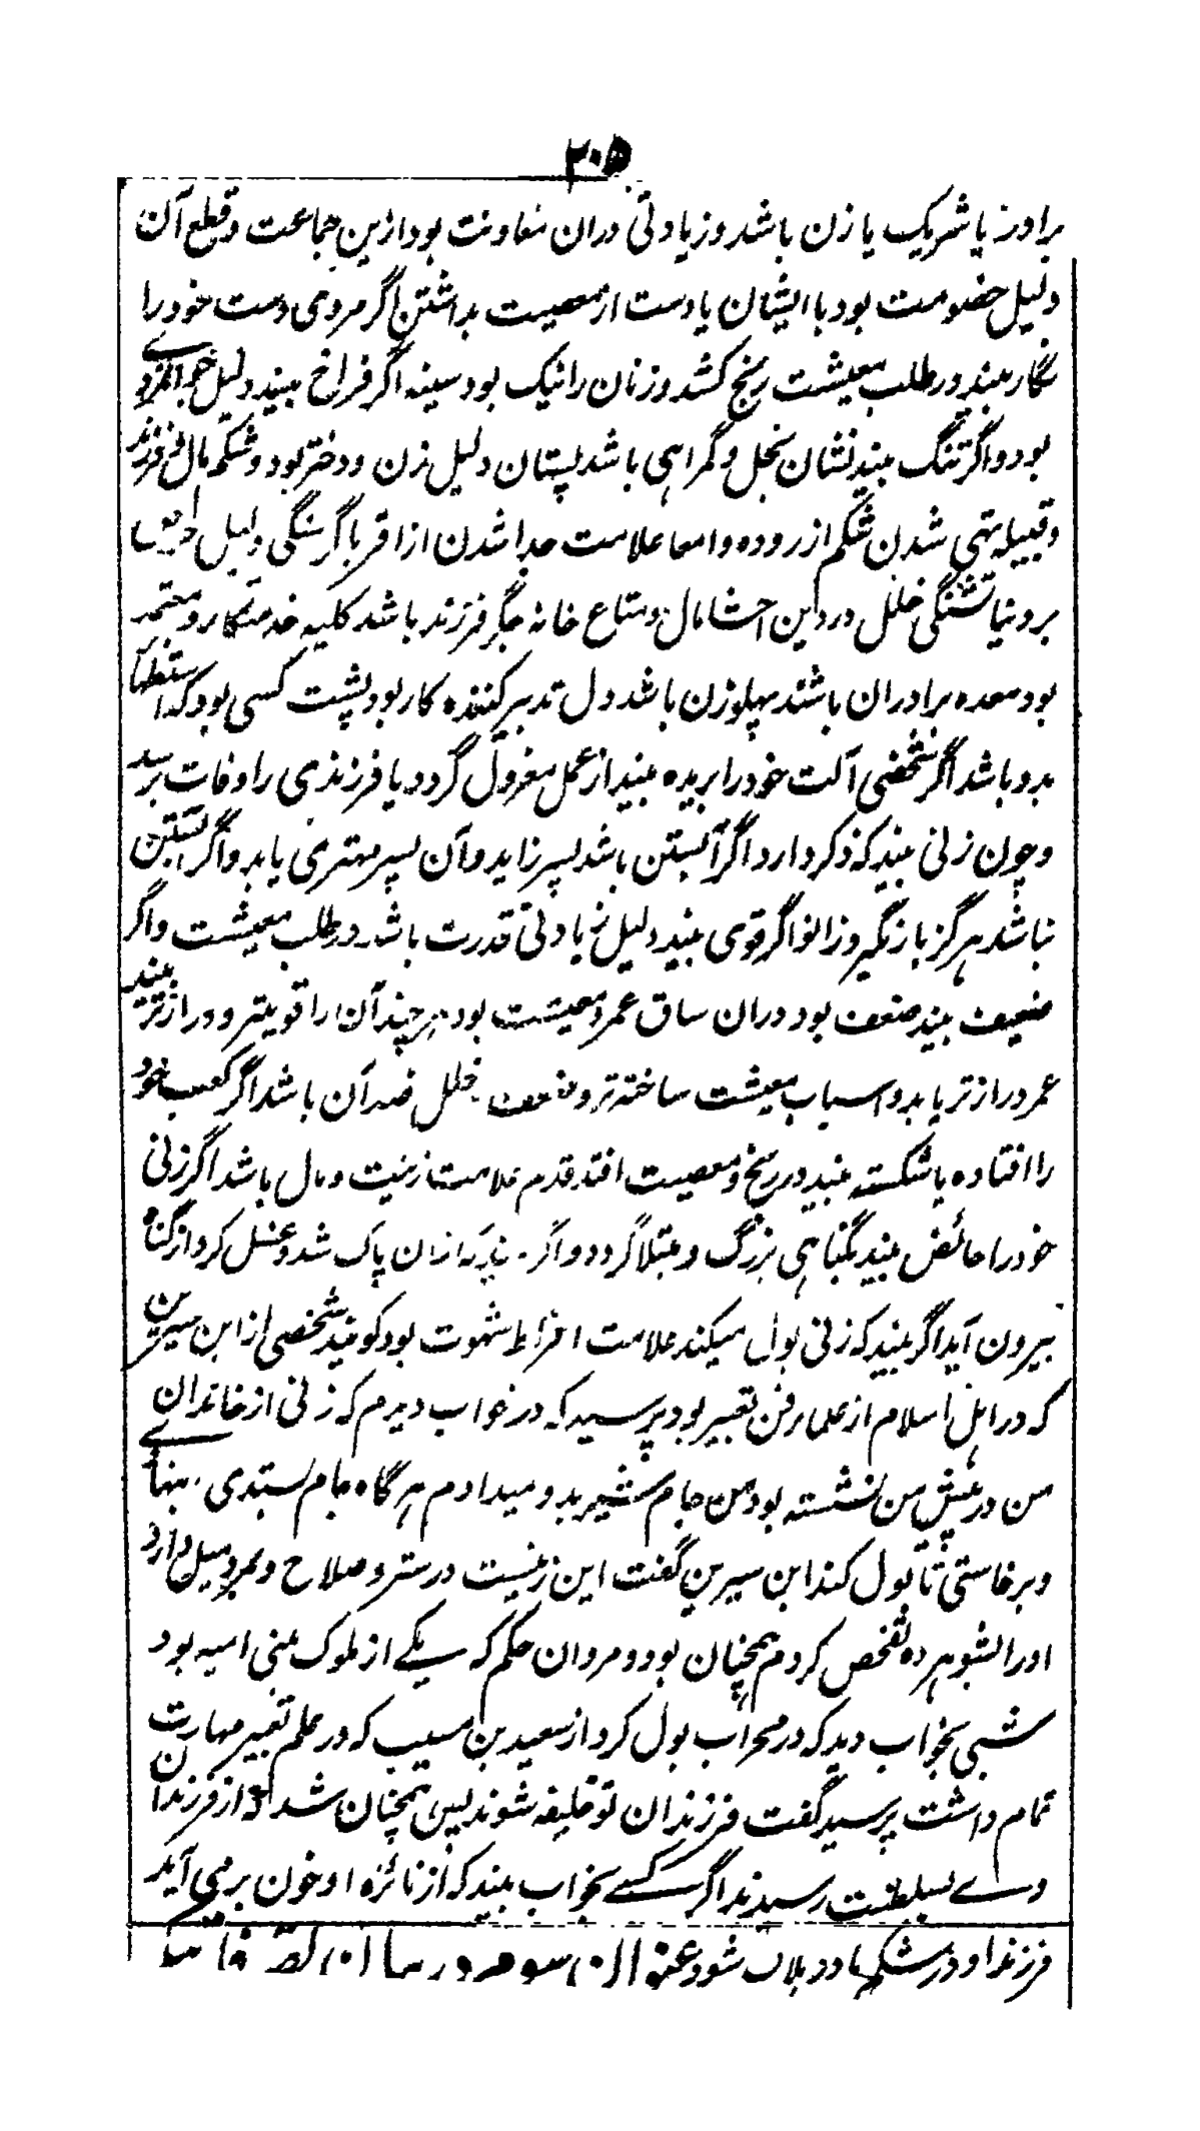 ۲۰۵
برادر یا شریک یا زن باشد و زیادتی دران معاونت بود ازین جماعت و قطع آن
دلیل خصومت بود با ایشان یا دست از معصیت بداشتن اگر مردی دست خود را
نگار بیند در طلب معیشت رنج کشد و زنان را نیک بود سینه اگر فراخ بیند دلیل جوانمردے
بود و اگر تنگ بیند نشان بخل و گمراہی باشد پستان دلیل زن و دختر بود و شکم مال و فرزند
و قبیلہ تہی شدن شکم از رودہ و امعا علامت جدا شدن از اقربا گرسنگی دلیل حرص
بر دنیا تشنگی خلل در دین احشا مال و متاع خانہ جگر فرزند باشد کلیہ خدمتگار و معتمد
بود معدہ برادران باشند پہلو زن باشد دل تدبیر کنندہ کار بود پشت کسی بود کہ استظہار
بدو باشد اگر شخصی آلت خود را بریدہ بیند از عمل معزول گردد یا فرزندی را وفات رسد
و چون زنی بیند کہ ذکر دارد اگر آبستن باشد پسر زاید و آن پسر مہتری یابد و اگر آبستن
نباشد ہرگز بار نگیرد زانو اگر قوی بیند دلیل زیادتی قدرت باشد در طلب معیشت و اگر
ضعیف بیند ضعف بود دران ساق عمر و معیشت بود ہر چند آن را قویتر و درازتر بیند
عمر درازتر یابد و اسباب معیشت ساختہ تر و ضعف خلل ضد آن باشد اگر کعب خود
را افتادہ یا شکستہ بیند در رنج و معصیت افتد قدم علامت زینت و مال باشد اگر زنی
خود را حائض بیند بگناہی بزرگ مبتلا گردد و اگر بیند کہ ازان پاک شد و غسل کرد از گناہ
بیرون آید اگر بیند کہ زنی بول میکند علامت افراط شہوت بود گویند شخصی از ابن سیرین
کہ در اہل اسلام از علمار فن تعبیر بود پرسید کہ در خواب دیدم کہ زنی از خاندان
من در پیش من نشستہ بود من جام شیر بدو میدادم ہرگاہ جام بستدی بنہادے
و برخاستی تا بول کند ابن سیرین گفت این زنیست در ستر و صلاح و بمرد میل دارد
اورا بشوہر دہ تفحص کردم ہمچنان بود و مروان حکم کہ یکے از ملوک بنی امیہ بود
شبی بخواب دید کہ در محراب بول کرد از سعید بن مسیب کہ در علم تعبیر مہارت
تمام داشت پرسید گفت فرزندان تو خلیفہ شوند پس ہمچنان شد و از فرزندان
وے بسلطنت رسیدند اگر کسے بخواب بیند کہ از نائزہ او خون برمی آید
فرزند او در شکم مادر ہلاک شود